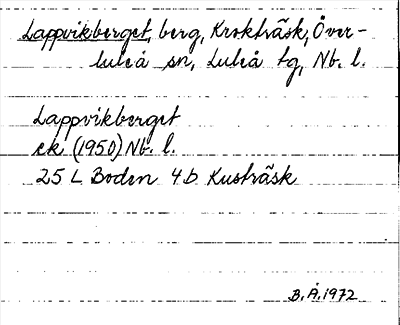 Lappvikberget, berg, Krokträsk, Över-
luleå sn, Luleå tg, Nb. l.
Lappvikberget
ek (1950) Nb. l.
25 L Boden 4b Kusträsk
B. Å. 1972